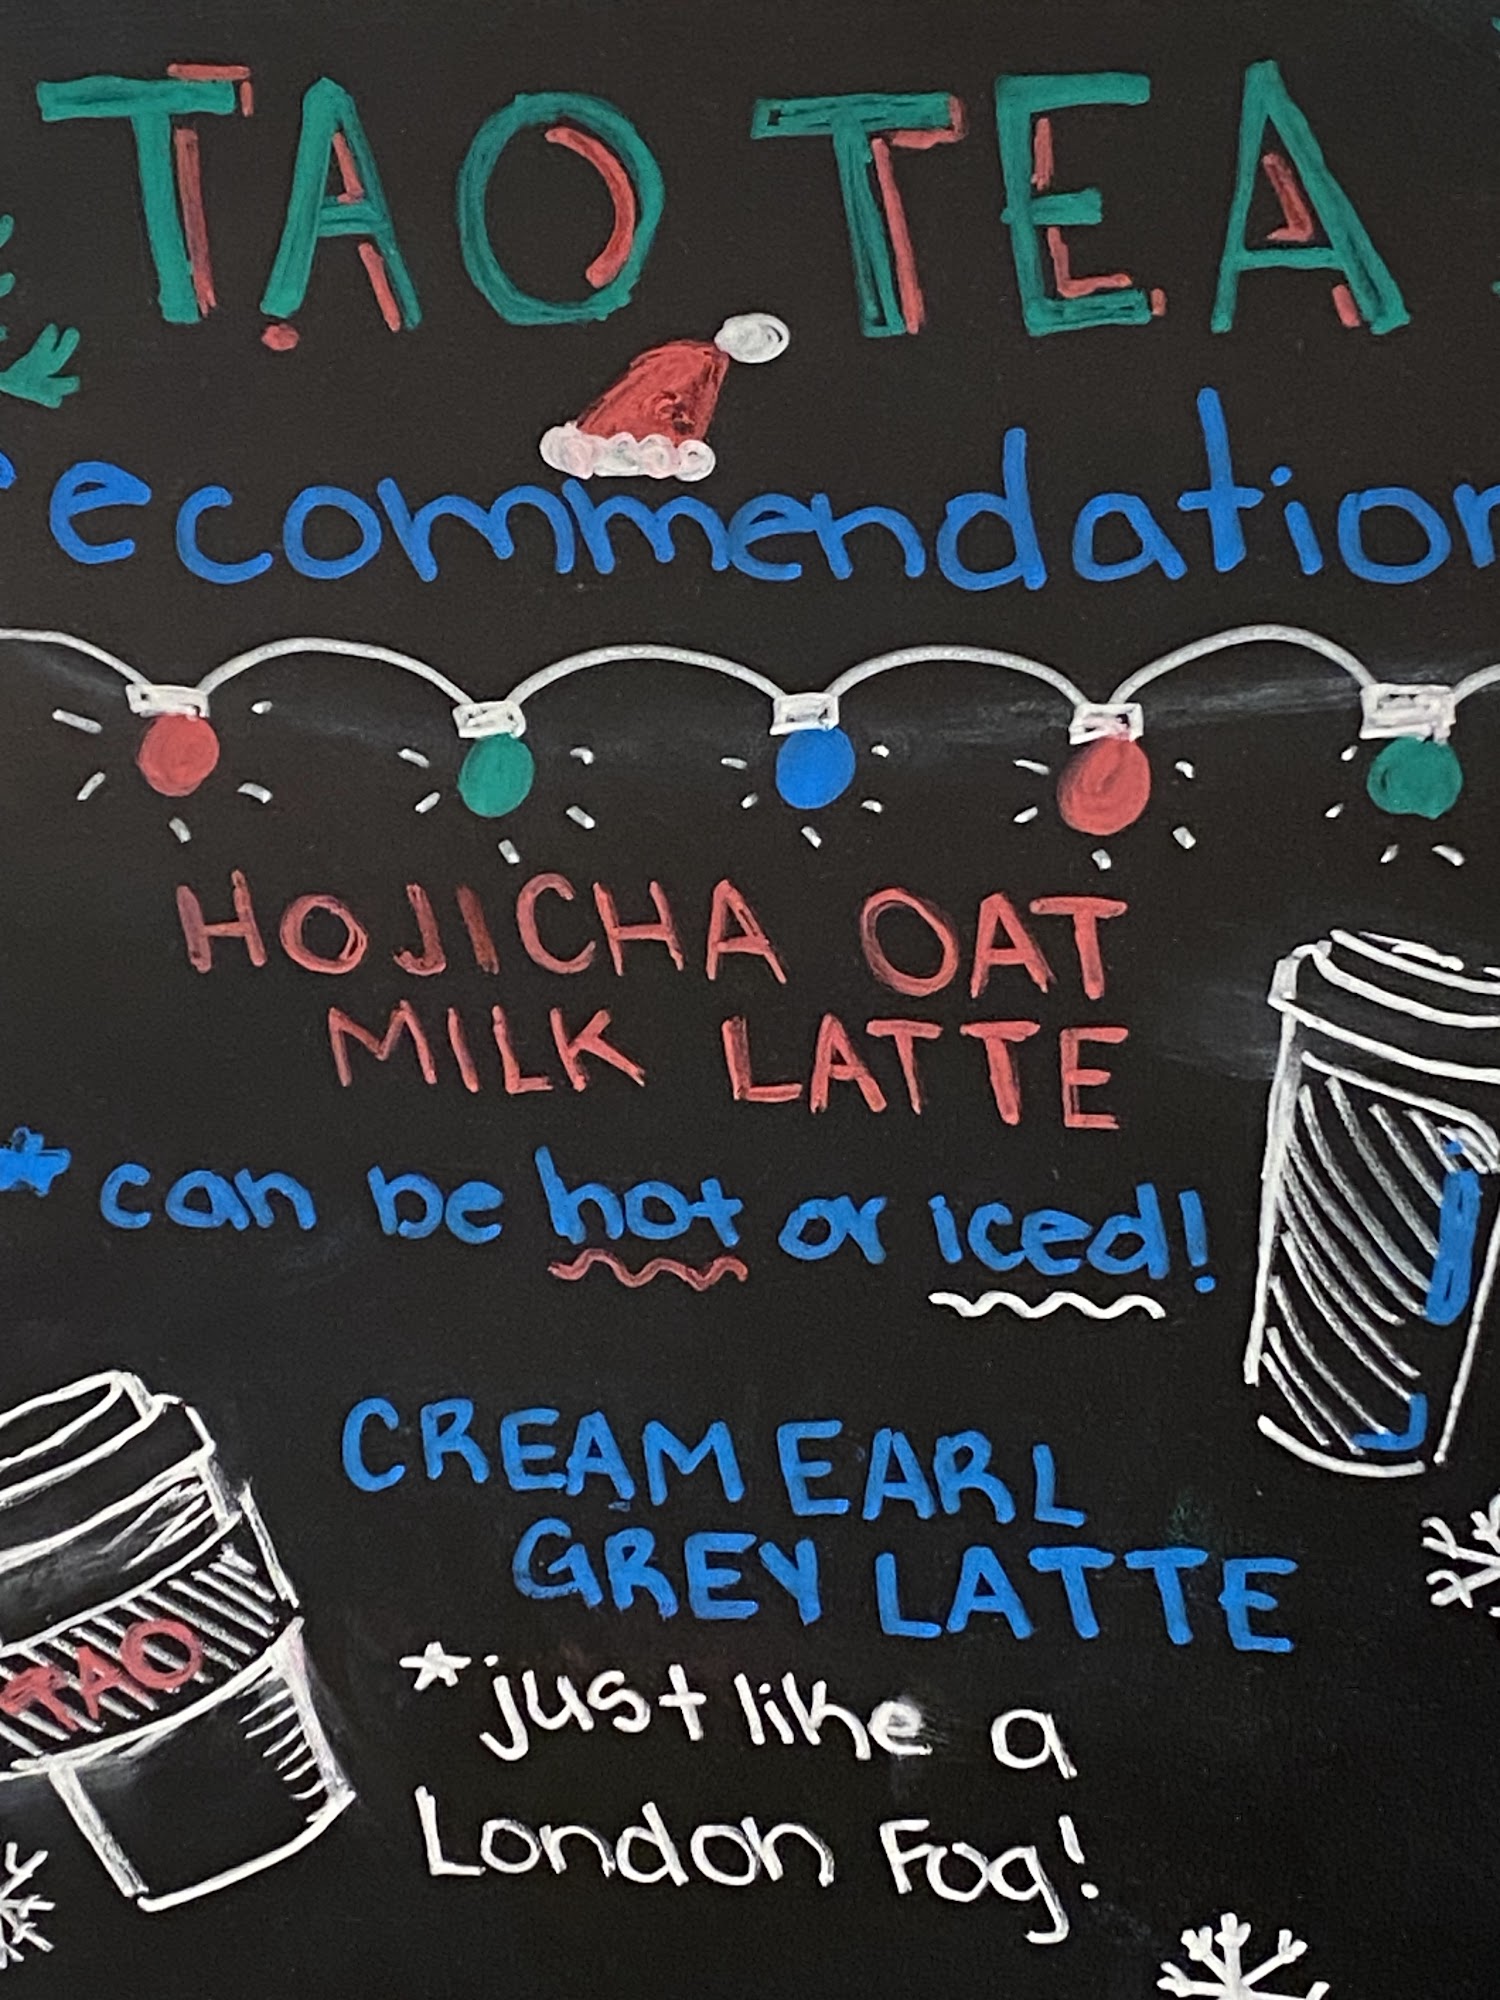 TAO TEA
recommendation
HOJICHA OAT
MILK LATTE
* can be hot or iced!
CREAM EARL
GREY LATTE
*just like a
London Fog!
TAO